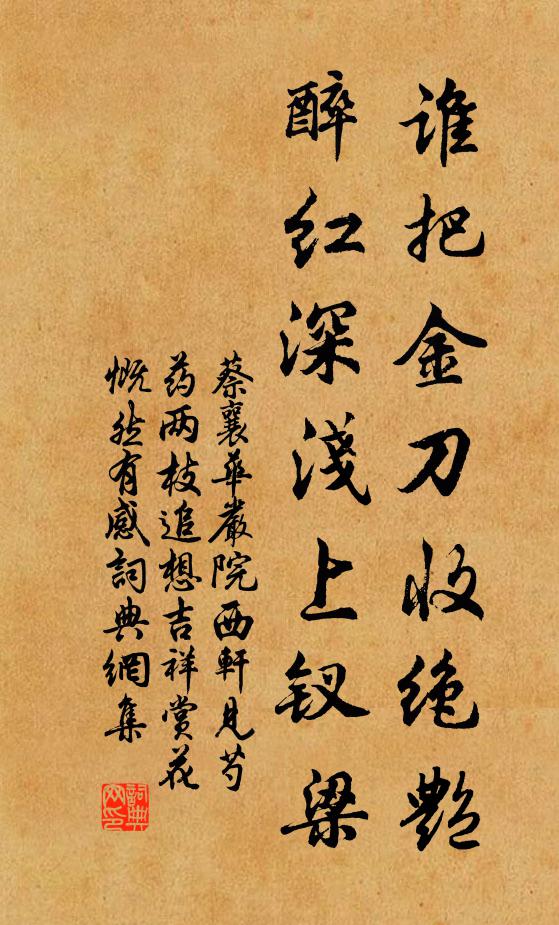 谁把金刀收绝艳
醉红深浅上钗梁
蔡襄华嚴院西軒見芍
药两枝追想吉祥赏花
慨然有感詞典網集
詞典网印